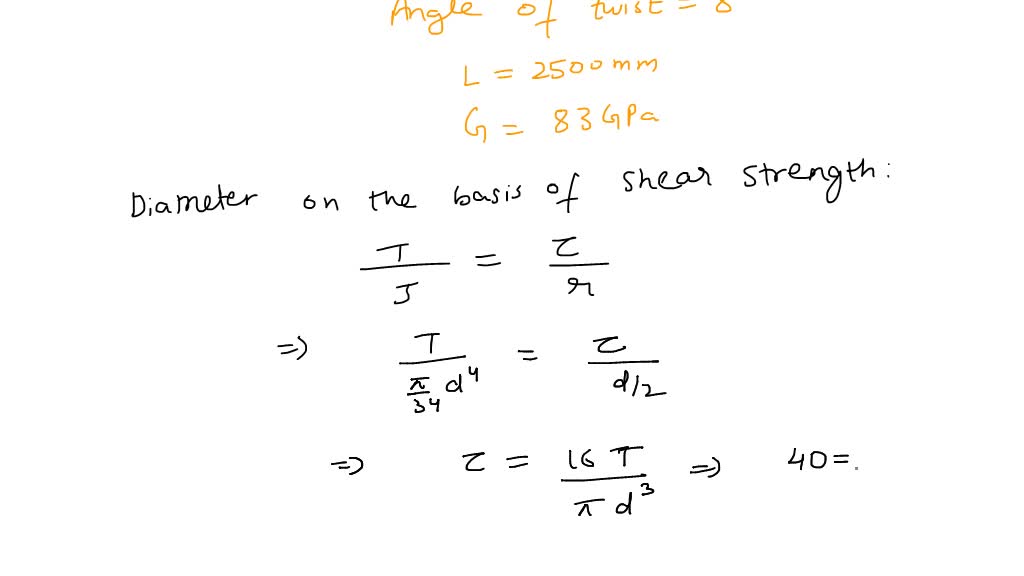 Angle of twist = 8
L = 2500 mm
G = 83 GPa
Diameter on the basis of shear strength:
T/J = τ/r
=> T/(π/34 d⁴) = τ/(d/2)
=> τ = 16 T/(π d³) => 40 =.